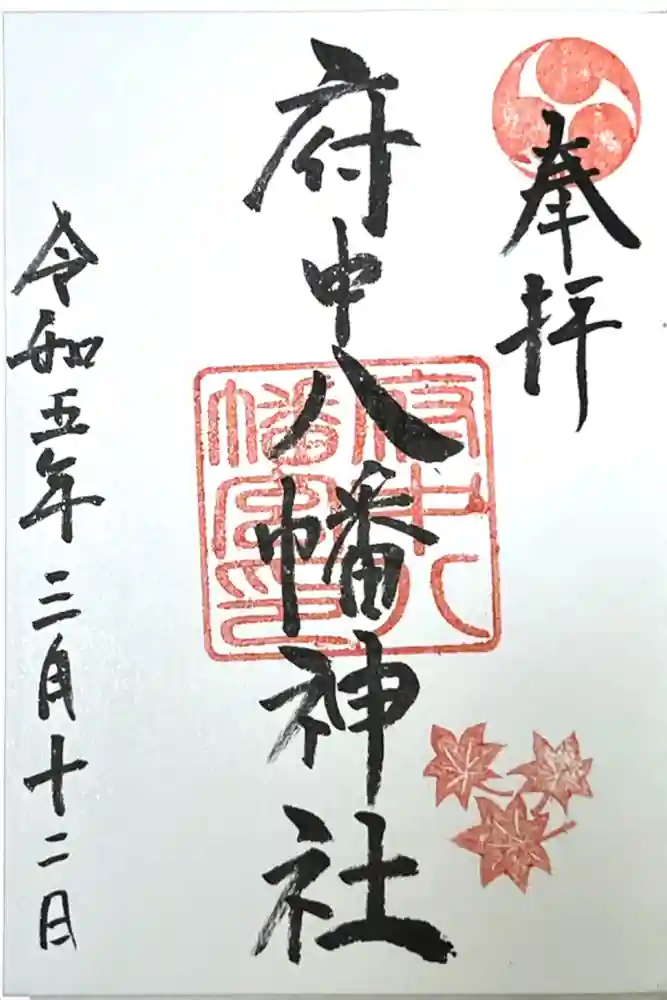 奉拝
府中八幡神社
府中八
幡宮印
令和五年三月十二日